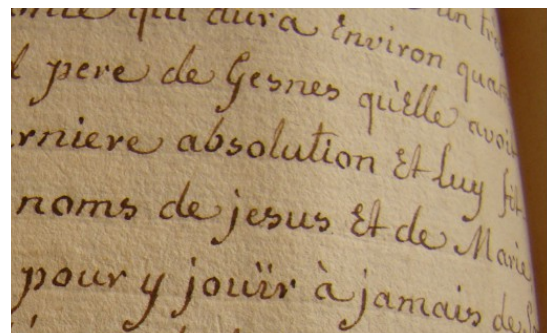 qui dura Environ
pere de Gesnes qu'Elle avoit
absolution Et luy fit
noms de jesus Et de Marie
pour y jouïr à jamais de